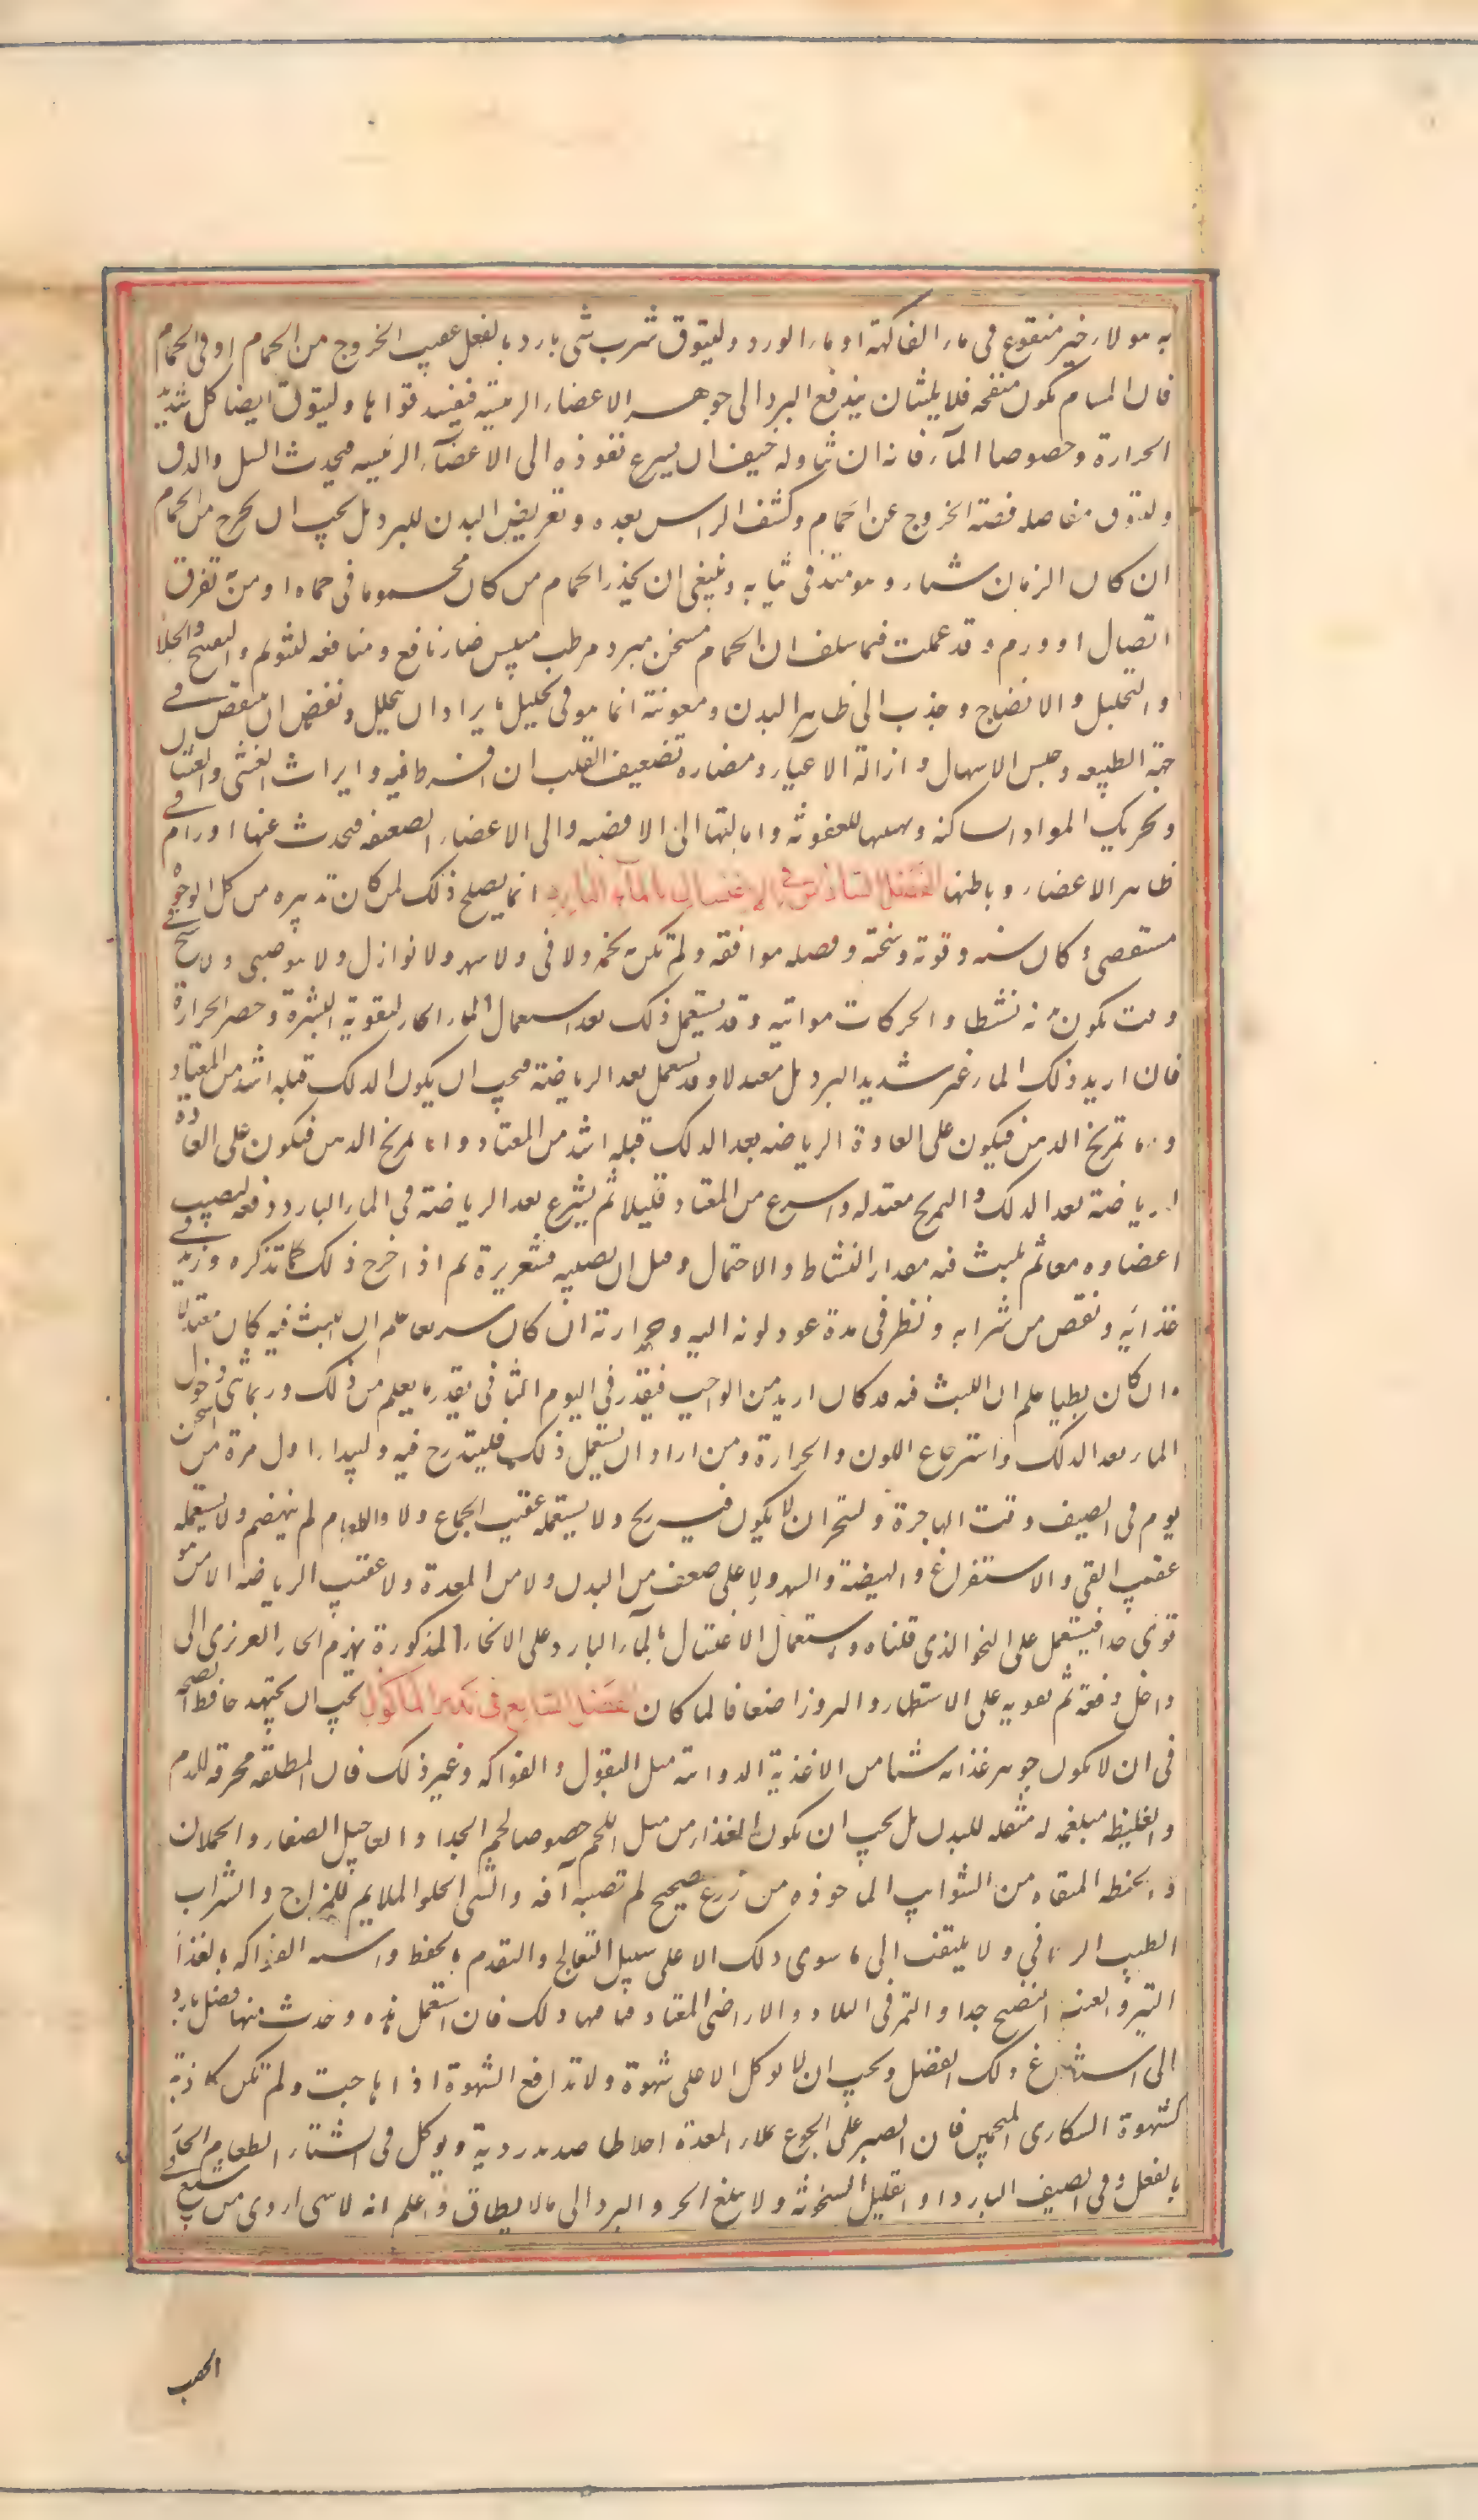 به هؤلاء خبز منقوع فى ماء الفاكهة او ماء الورد وليتوق شرب شئ بارد بالفعل عقيب الخروج من الحمام او فى الحمام
فان المسام تكون منفتحه فلا يلبث ان يندفع البرد الى جوهر الاعضاء الرئيسه فيفسد قواها وليتوق ايضا كل شديد
الحرارة وخصوصا الماء فانه ان تناوله خيف ان يسرع نفوذه الى الاعضاء الرئيسيه فيحدث السل والدق
وليتوق مغافصه الخروج عن الحمام وكشف الراس بعده وتعريض البدن للبرد بل يجب ان يخرج من الحمام
ان كان الزمان شتاء وهو متدثر فى ثيابه وينبغى ان يحذر الحمام من كان محموما فى حماه او من به تفرق
اتصال او ورم وقد علمت فيما سلف ان الحمام مسخن مبرد مرطب ميبس ضار نافع ومنافعه التنويم والتفتيح والجلاء
والتحليل والانضاج وجذب الى ظاهر البدن ومعونته انما هو فى تحليل ما يراد ان يتحلل ونفض ما يراد ان ينتفض فى
جهة الطبيعه وحبس الاسهال وازالة الاعياء ومضاره تضعيف القلب ان افرط فيه وايراث الغشى والغثيان
وتحريك المواد الساكنة وتهيئتها للعفونة وامالتها الى الافضيه والى الاعضاء الضعيفه فيحدث عنها اورام فى
ظاهر الاعضاء وباطنها الفصل السادس فى الاغتسال بالماء البارد انما يصلح ذلك لمن كان تدبيره من كل الوجوه
مستقصى وكان سنه وقوته وسحنته وفصله موافقه ولم تكن به تخمه ولا قى ولا سهر ولا نوازل ولا هو صبى ولا شيخ فى
وقت يكون بدنه نشطا والحركات مواتيه وقد يستعمل ذلك بعد استعمال الماء الحار لتقوية البشرة وحصر الحرارة
فان اريد ذلك الماء غير شديد البرد بل معتدلا وقد يستعمل بعد الرياضة فيجب ان يكون الدلك قبله اشد من المعتاد
واما تمريخ الدهن فيكون على العادة الرياضه بعد الدلك قبله اشد من المعتاد واما تمريخ الدهن فيكون على العادة
الرياضة بعد الدلك والتمريخ معتدله واسرع من المعتاد قليلا ثم يشرع بعد الرياضة فى الماء البارد دفعه ليصيب
اعضاوه معا ثم يلبث فيه مقدار النشاط والاحتمال وقبل ان يصيبه قشعريرة ثم اذا خرج ذلك كما نذكره وزيد فى
غذائه ونقص من شرابه ونظر فى مدة عود لونه اليه وحرارته ان كان سريعا علم ان اللبث فيه كان معتدلا
وان كان بطيا علم ان اللبث فيه قد كان ازيد من الواجب فيقدر فى اليوم الثانى بقدر ما يعلم من ذلك وربما ثنى دخول
الماء بعد الدلك واسترجاع اللون والحرارة ومن اراد ان يستعمل ذلك فليتدرج فيه وليبدا اول مرة من اسخن
يوم فى الصيف وقت الهاجرة وليتحر ان لا يكون فيه ريح ولا يستعمله عقيب الجماع ولا والطعام لم ينهضم ولا يستعمله
عقيب القى والاستفراغ والهيضة والسهر ولا على ضعف من البدن ولا من المعدة ولا عقيب الرياضه الا من هو
قوى جدا فيستعمل على النحو الذى قلناه واستعمال الاغتسال بالماء البارد على الانحاء المذكورة يهزم الحار الغريزى الى
داخل دفعة ثم يقويه على الاستظهار والبروز اضعافا لما كان الفصل السابع فى تدبير المأكول يجب ان يجتهد حافظ الصحه
فى ان لا يكون جوهر غذائه شيئا من الاغذية الدوائيه مثل البقول والفواكه وغير ذلك فان الملطفه محرقه للدم
والغليظه مبلغمه مثقله للبدن بل يجب ان يكون الغذاء من مثل اللحم خصوصا لحم الجداء والعجاجيل الصغار والحملان
والحنطه المنقاه من الشوائب الماخوذه من زرع صحيح لم تصبه آفه والشى الحلو الملايم للمزاج والشراب
الطيب الريحانى ولا يلتفت الى ما سوى ذلك الا على سبيل التعالج والتقدم بالحفظ واشبه الفواكه بالغذا
التين والعنب النضيج جدا والتمر فى البلاد والاراضى المعتاد فيها ذلك فان استعمل هذه وحدث منها فضل بادر
الى استفراغ ذلك الفضل ويجب ان لا يوكل الا على شهوة ولا تدافع الشهوة اذا هاجت ولم تكن كاذبة
كشهوة السكارى المتخمين فان الصبر على الجوع يملاء المعدة اخلاطا صديديه رديه ويوكل فى الشتاء الطعام الحار
بالفعل وفى الصيف البارد او القليل السخونة ولا يبلغ الحر والبرد الى مالا يطاق واعلم انه لا شى اردى من شبع فى
الخصب